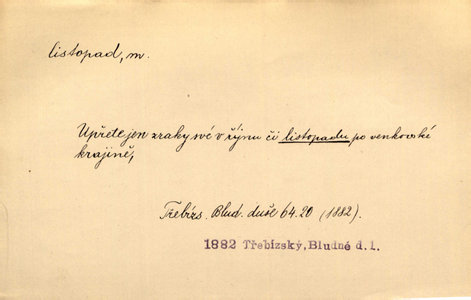 listopad, m.
Upřete jen zraky své v říjnu či listopadu po venkovské
krajině,
Třebízs. Blud. duše 64.20 (1882).
1882 Třebízský, Bludné d.1.